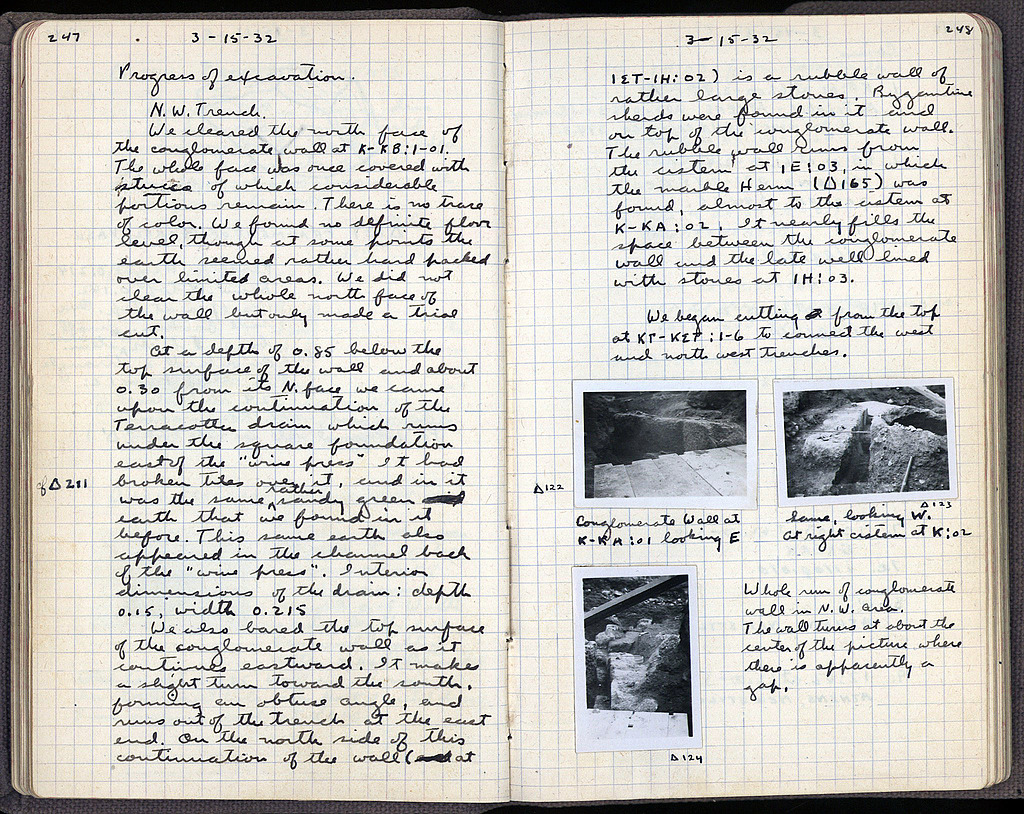 247
3-15-32
Progress of excavation.
N.W. Trench.
We cleared the north face of
the conglomerate wall at K-KB:1-01.
The whole face was once covered with
stucco of which considerable
portions remain. There is no trace
of color. We found no definite floor
level, though at some points the
earth seemed rather hard packed
over limited areas. We did not
clear the whole north face of
the wall but only made a trial
cut.
At a depth of 0.85 below the
top surface of the wall and about
0.30 from its N. face we came
upon the continuation of the
Terracotta drain which runs
under the square foundation
east of the "wine press" It had
broken tiles over it, and in it
cf Δ211
was the same rather sandy green
earth that we found in it
before. This same earth also
appeared in the channel back
of the "wine press". Interior
dimensions of the drain: depth
0.15, width 0.215
We also bared the top surface
of the conglomerate wall as it
continues eastward. It makes
a slight turn toward the south,
forming an obtuse angle, and
runs out of the trench at the east
end. On the north side of this
continuation of the wall (at
248
3-15-32
IΣT-IH:02) is a rubble wall of
rather large stones. Byzantine
sherds were found in it and
on top of the conglomerate wall.
The rubble wall runs from
the cistern at IE:03, in which
the marble Herm (Δ165) was
found, almost to the cistern at
K-KA:02. It nearly fills the
space between the conglomerate
wall and the late well lined
with stones at IH:03.
We began cutting from the top
at KΓ-KΣT:1-6 to connect the west
and north west trenches.
Δ122
Conglomerate Wall at
K-KA:01 looking E
Δ123
Same, looking W.
At right cistern at K:02
Δ124
Whole run of conglomerate
wall in N.W. area.
The wall turns at about the
center of the picture where
there is apparently a
gap.